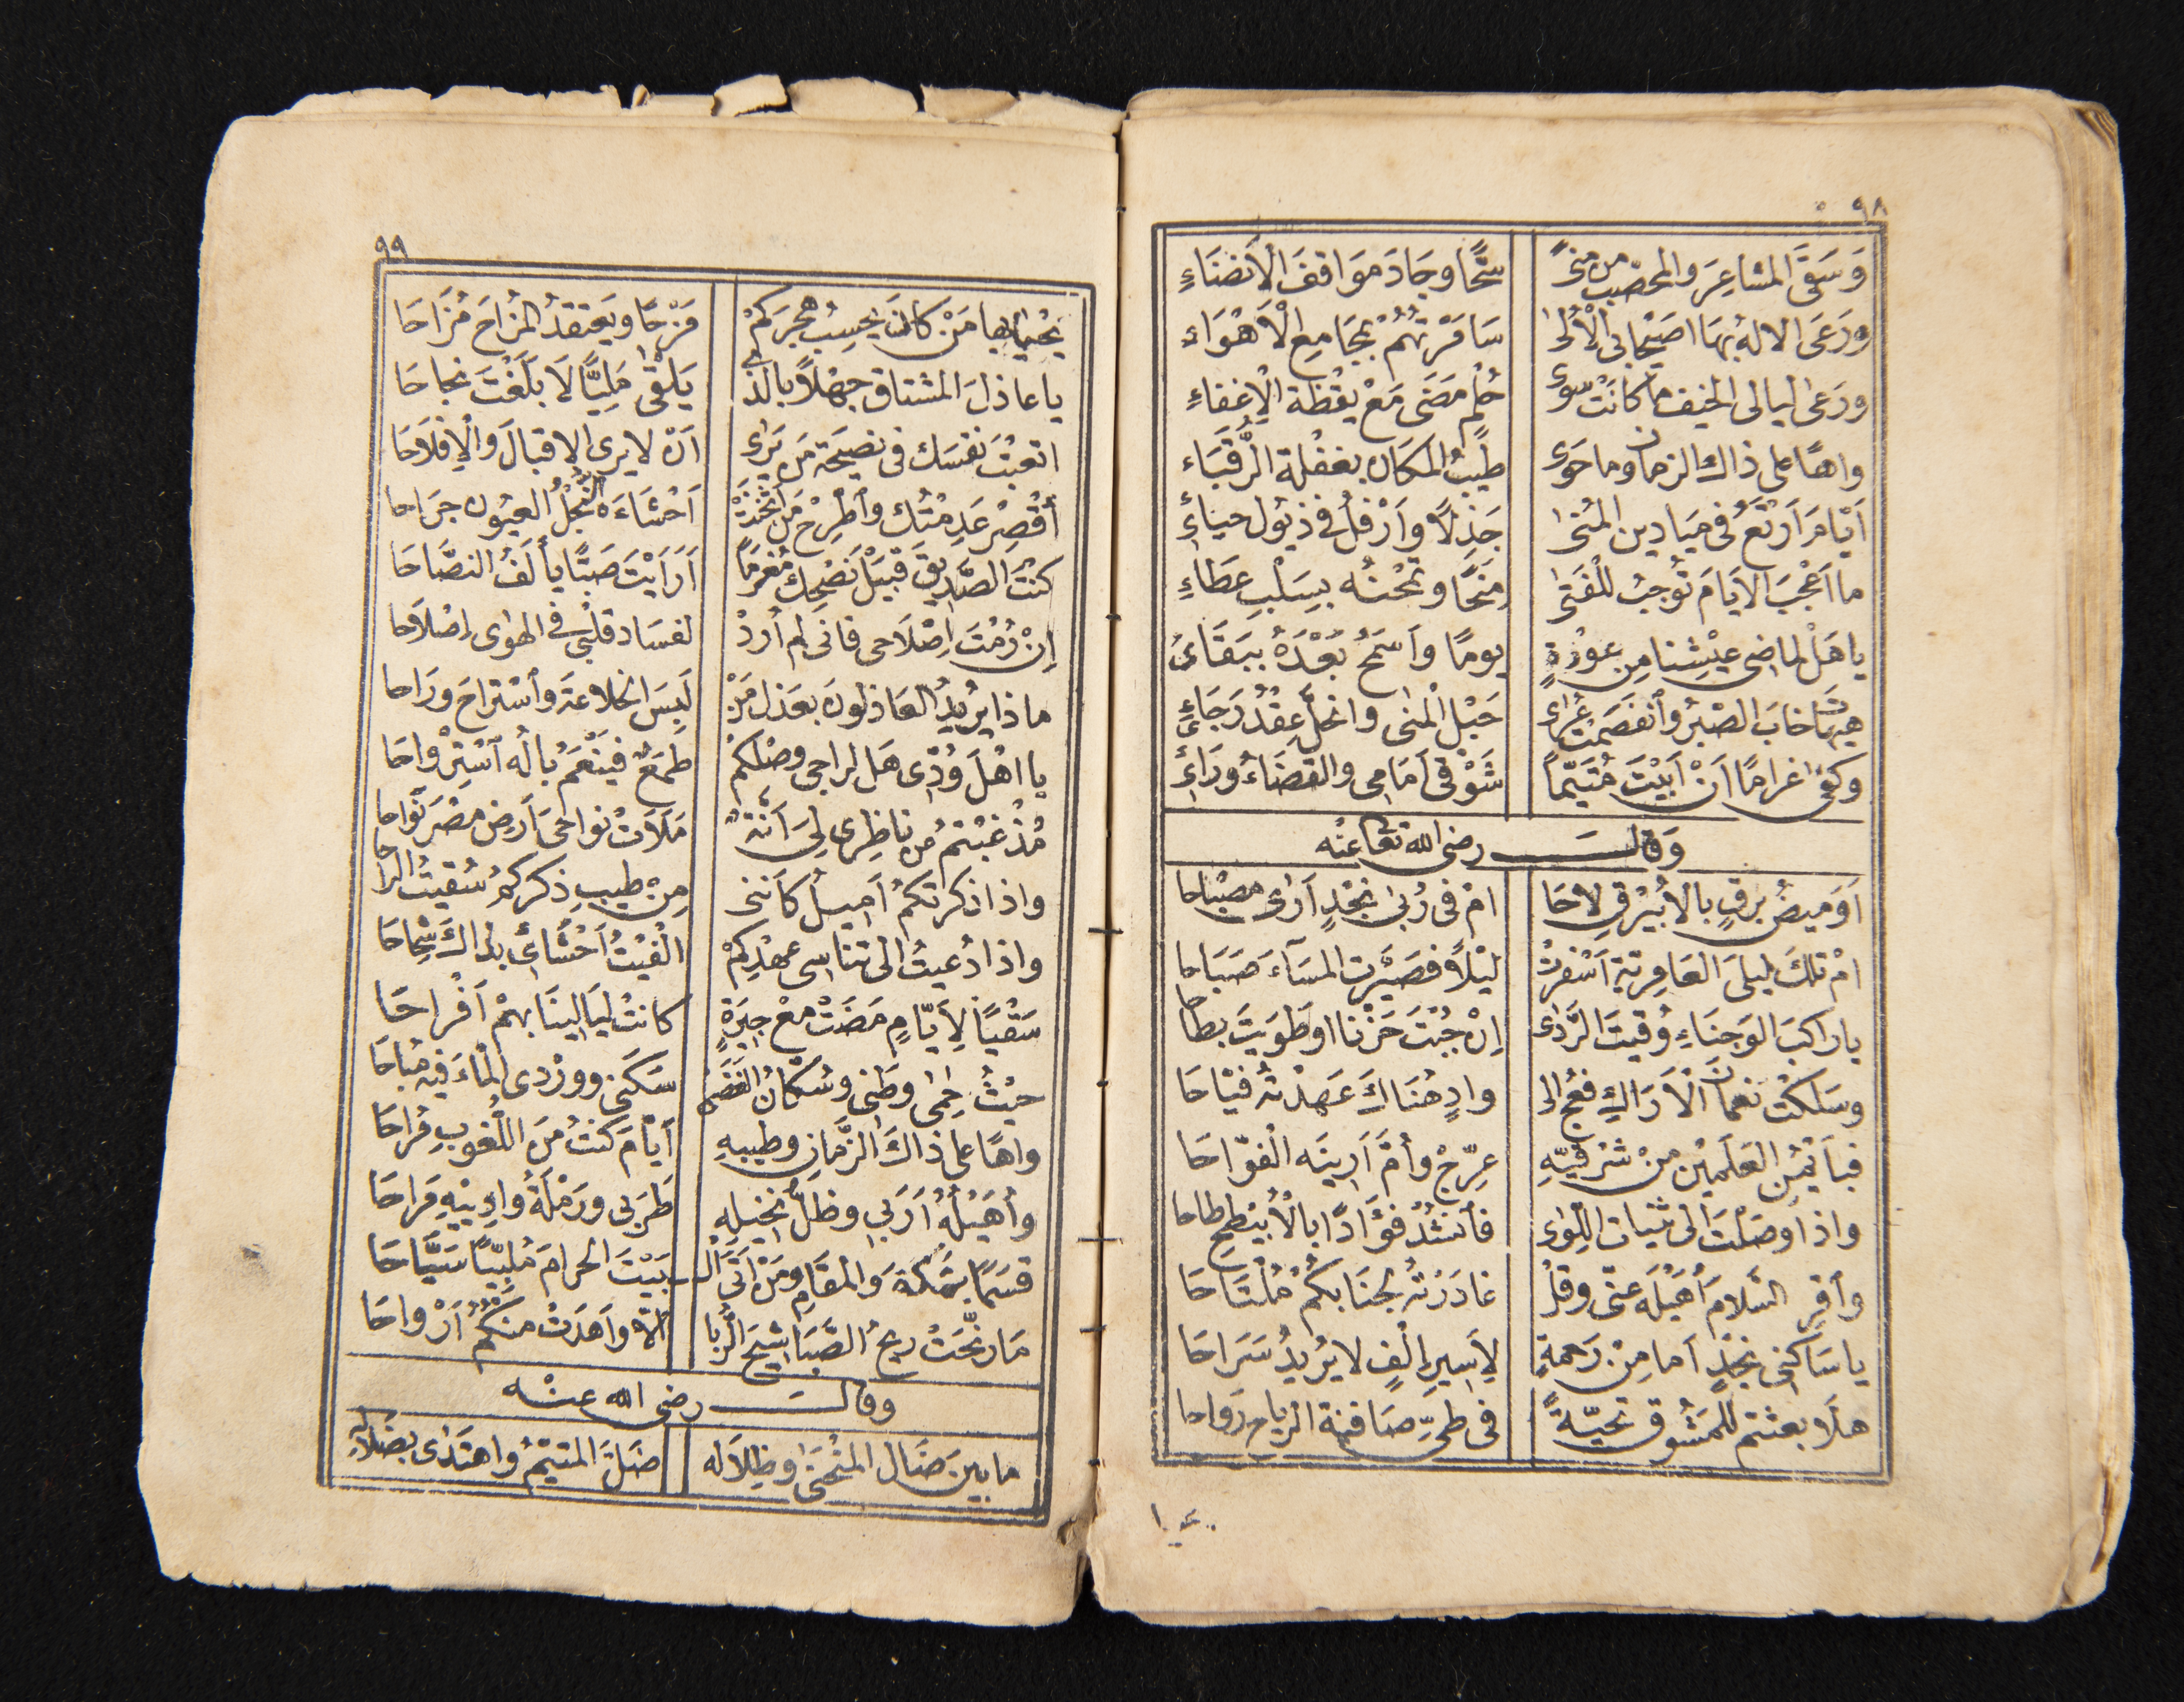 ٩٨
وَسَقَى المشاعِرَ والمحصّبِ من منىً سَحًّا وجَادَ موَاقفَ الْاَنضَاءِ
ورَعَى الالهُ بهَا اُصَيْحابى الْاُلىٰ سَامَرْتهُمْ بمجَامعِ الْاَهْوَاءِ
ورَعىٰ ليالى الخيف ما كانتْ سوىٰ حُلْمٍ مَضَى مَعْ يقْظةِ الْاِغفاءِ
واهًا على ذاك الزمان وما حَوىٰ طِيبُ المكان بغفْلة الرُّقبَاء
اَيَّامَ اَرتَعُ فى ميَادين المُنىٰ جَذِلًا وَاَرْفلُ فى ذيُول حباءِ
ما اَعْجَبَ الايَامَ توُجبُ للْفَتىٰ مِنَحًا وتمْحنُه بسَلْبِ عَطاءِ
يا هَلْ لماضِى عيْشِنا مِن عوْدةٍ يومًا واَسمَحُ بَعْدَهُ ببَقَائِ
هيهاتَ خابَ الصّبرُ وٱنفصَمَتْ عُرىٰ حَبْل المُنىٰ وانحلَّ عقْدُ رَجَائِ
وكفىٰ غرامًا اَنْ اَبيْتَ مُتَيّماً شَوْقى اَمَامى والقضَاءُ ورَائِ
وَقالـــــــــ رضى الله تعالى عنْه
اَوَميضُ برْقٍ بالاُبيْرِقِ لاحَا امْ فى رُبىٰ نجْدٍ اَرىٰ مصْباحا
امْ تلكَ ليلَى العَامِريّة اَسْفرتْ ليْلًا فصَيَّرت المسَآءَ صَبَاحا
يا راكبَ الوَجنَاءِ وُقيتَ الرَّدىٰ اِن جُبْتَ حَزْنا او طَوَيتَ بطاحا
وسَلكْتَ نعمانَ الْاَرَاكِ فعُجْ الىٰ وادٍ هُنَاكَ عَهدْتُه فيّاحَا
فباَيْمَنِ العَلَميْنِ منْ شرْقيّهِ عرّجْ واُمَّ اَرينَه الْفوّاحَا
واذا وصَلْتَ الىٰ ثنيّات اللّوىٰ فاُنشُدْ فؤادًا بالْاُبيْطِح طاحا
وٱقرِ السَّلامَ اُهَيْلَه عنّى وقلْ غادَرْتُه لجنَابكُمْ مُلْتَاحَا
يا سَاكِنى نجْدٍ اَما مِنْ رَحمةٍ لِاَسيرِ اِلْفٍ لا يُريدُ سَرَاحَا
هلّا بعثتم للمَشُوق تحيّةً فى طىِّ صَافنة الرياح رَوَاحا
٩٩
يحْيا بها مَنْ كانَ يحسِبُ هجرَكمْ مَزْحًا ويَعتقدُ المُزاحَ مُزَاحَا
يا عاذلَ المشتاق جهْلاً بالّذى يَلقىٰ مَلِيًّا لَا بلَغتَ نجاحَا
اتعبْتَ نفسَك فى نصيحَة مَن يَرىٰ اَنْ لا يرى الاقبالَ والْاِفلَاحَا
أقْصِرْ عَدِمْتُك وٱطّرِحْ مَن اَثخنَتْ اَحْشَاءَه النُّجْلُ العيُون جرَاحا
كنْتَ الصّديقَ قبَيْلَ نصْحِكَ مُغرَمًا اَرَاَيْتَ صَبًّا يأْلَفُ النصَّاحَا
اِنْ رُمْتَ اِصْلَاحى فانى لم اُردْ لفسَاد قلْبى فى الهوٰى اِصْلَاحا
ماذا يُريدُ العَاذلونَ بعَذل مَنْ لَبِسَ الخلاعَةَ وٱسْتراحَ ورَاحا
يا اهْلَ وُدّى هَل لراجى وصْلكمْ طمَعٌ فيَنْعَمُ بالُه ٱسْترْواحَا
مُذْ غبْتمُ من ناظِرى لِىَ اَنّةٌ مَلَأتْ نواحىَ اَرض مصْرَ نُواحا
واذا ذكرتكمُ اَميلُ كأنّنى مِنْ طيبِ ذكركمُ سُقيتُ الراحا
واذا دُعيتُ الىٰ تناسى عهْدِكمْ الْفيْتُ اَحْشَائى بذاكَ شِحاحَا
سَقْيًا لِاَيّامٍ مَضَتْ معْ جيرَةٍ كانتْ ليَالينَا بهمْ اَفْراحَا
حيْثُ الحِمىٰ وطَنى وسُكّانُ الغَضىٰ سَكَنى ووِرْدى المَاءَ فيه مُباحَا
واهًا على ذاكَ الزَّمانِ وطيبهِ اَيَّامَ كنْتُ منَ اللُّغوبِ مُراحَا
وأُهَيْلُهُ اَرَبى وظلُّ نخيْلِهِ طَرَبى ورَمْلَةُ وادِييْهِ مَراحَا
قسَمًا بمَكّةَ وَالمقَامِ ومَنْ اَتَى الْـ ـبَيْتَ الحرامَ مُلبّيًا سَيَّاحَا
مَا رنّحَتْ ريحُ الصَّبَا شيحَ الرُّبا الّا وَاَهْدَتْ منْكمُ اَرْواحَا
وقالـــــــــ رضى الله عنْه
ما بينَ ضَال المُنْحَنىٰ وظِلَالِه ضَلَّ المتيّمُ واهتَدىٰ بضَلالِه